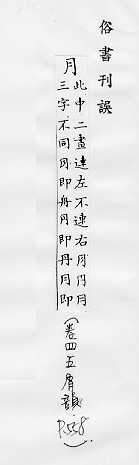 俗書刊誤
月
此中二畫連左不連右月円月
三字不同月即舟円即丹月即
(卷四五屑韻 P.558)